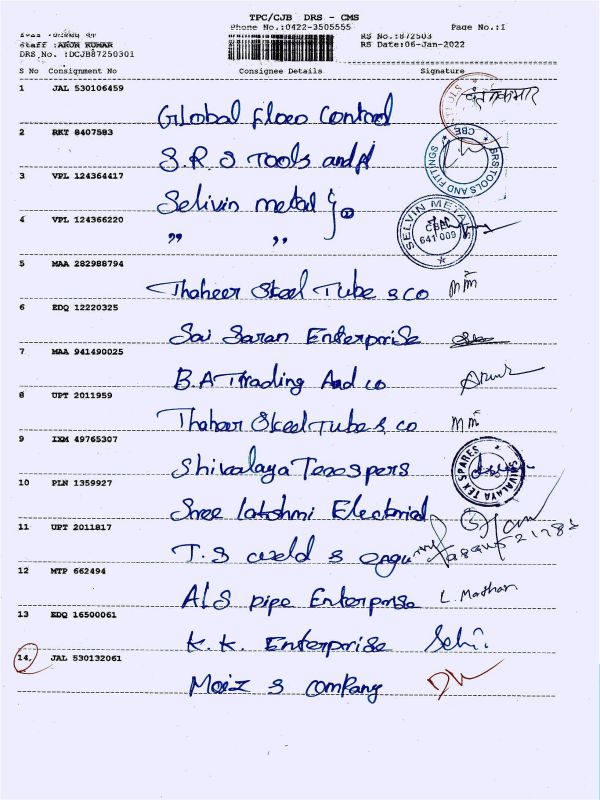 TPC/CJB DRS - CMS
Phone No.:0422-3505555 Page No.:1
RS No.:872503
Staff :ARUN KUMAR RS Date:06-Jan-2022
DRS No. :DCJB87250301
S No Consignment No Consignee Details Signature
1 JAL 530106459
Global Flow Control
2 RKT 8407583
S.R.S Tools and
CBE
SRS TOOLS AND FITTINGS
3 VPL 124364417
Selivin metal } 2
4 VPL 124366220
" "
SELVIN METAL
CBE
641 009
5 MAA 282988794
Thaheer Steel Tube & co
6 EDQ 12220325
Sai Saran Enterprise
7 MAA 941490025
B.A Thrading And co
8 UPT 2011959
Thaheer Steel Tube & co
9 IXM 49765307
Shivalaya Texspers
SHIVALAYA TEX SPARES
10 PLN 1359927
Sree lakshmi Electrical
11 UPT 2011817
T.S weld & engg
12 MTP 662494
ALS pipe Enterprise L. Mathan
13 EDQ 16500061
K.K. Enterprise
14. JAL 530132061
Moiz & company